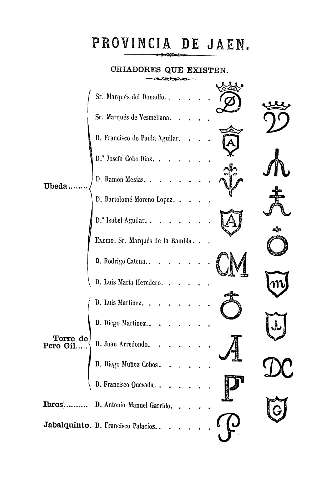 PROVINCIA DE JAEN.
CRIADORES QUE EXISTEN.
Sr. Marqués del Donadío. . . . . .
Sr. Marqués de Vesmeliana. . . . . .
D. Francisco de Paula Aguilar. . . . .
D.ª Josefa Cobo Diaz. . . . . .
D. Ramon Mesías. . . . . .
D. Bartolomé Moreno Lopez. . . . .
Ubeda.......
D.ª Isabel Aguilar. . . . . .
Excmo. Sr. Marqués de la Rambla. . .
D. Rodrigo Catena. . . . . .
D. Luis María Heredero. . . . .
D. Luis Martinez. . . . . . .
D. Diego Martinez. . . . . . .
Torre de
Pero Gil....
D. Juan Arredondo. . . . . .
D. Diego Muñoz Cobos. . . . . .
D. Francisco Quesada. . . . . .
Ibros......... D. Antonio Manuel Garrido. . . . .
Jabalquinto. D. Francisco Palacios. . . . . .
D
A
A
CM
m
A
DC
P
G
P